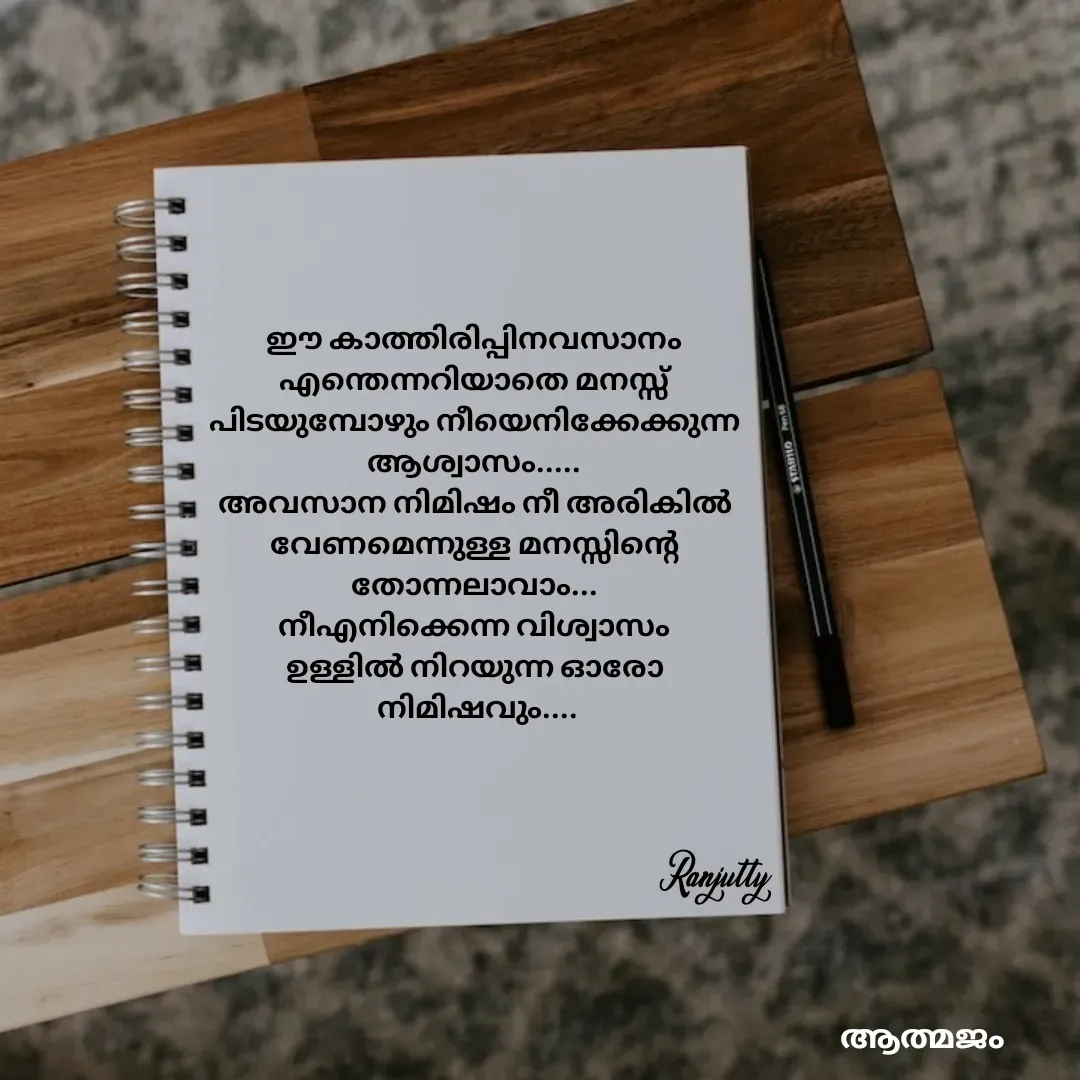 ഈ കാത്തിരിപ്പിനവസാനം
എന്തെന്നറിയാതെ മനസ്സ്
പിടയുമ്പോഴും നീയെനിക്കേക്കുന്ന
ആശ്വാസം.....
അവസാന നിമിഷം നീ അരികിൽ
വേണമെന്നുള്ള മനസ്സിന്റെ
തോന്നലാവാം...
നീഎനിക്കെന്ന വിശ്വാസം
ഉള്ളിൽ നിറയുന്ന ഓരോ
നിമിഷവും....
STABILO Pen 68
Ranjutty
ആത്മജം